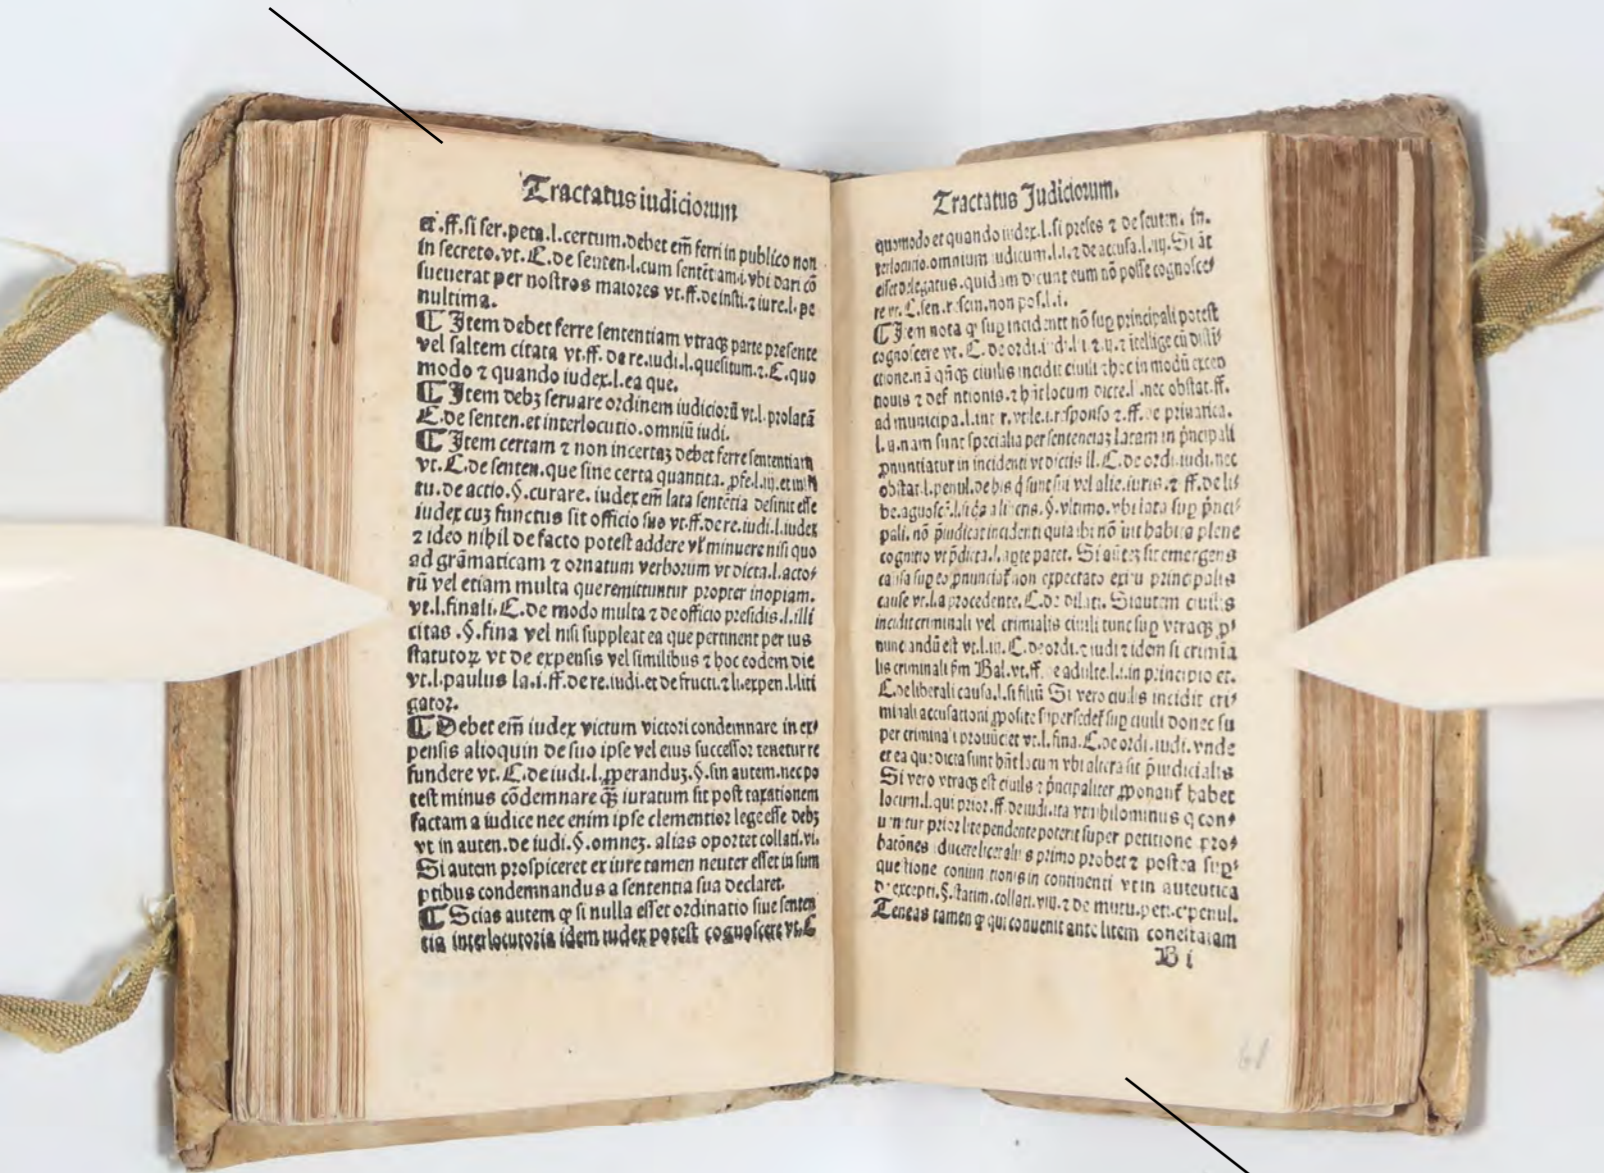 Tractatus iudiciorum
et .ff. si ser. peta. l. certum. debet em̄ ferri in publico non
in secreto. vt. C. de senten. l. cum sentētiam. i. vbi dari cō
sueuerat per nostros maiores vt. ff. de insti. ⁊ iure. l. pe
nultima.
¶ Item debet ferre sententiam vtraqꝫ parte presente
vel saltem citata vt. ff. de re. iudi. l. quesitum. ⁊. C. quo
modo ⁊ quando iudex. l. ea que.
¶ Item debꝫ seruare ordinem iudiciorū vt. l. prolatā
C. de senten. et interlocutio. omniū iudi.
¶ Item certam ⁊ non incertaꝫ debet ferre sententiam
vt. C. de senten. que sine certa quantita. ꝓfe. l. iij. et in
tu. de actio. §. curare. iudex em̄ lata sentētia desinit esse
iudex cuꝫ functus sit officio suo vt. ff. de re. iudi. l. iudex
⁊ ideo nihil de facto potest addere vł minuere nisi quo
ad grāmaticam ⁊ ornatum verborum vt dicta. l. acto⸗
rū vel etiam multa que remittuntur propter inopiam.
vt. l. finali. C. de modo multa ⁊ de officio presidis. l. illi
citas. §. fina vel nisi suppleat ea que pertinent per ius
statutoꝝ vt de expensis vel similibus ⁊ hoc eodem die
vt. l. paulus la. i. ff. de re. iudi. et de fructi. ⁊ li. expen. l. liti
gator.
¶ Debet em̄ iudex victum victori condemnare in ex⸗
pensis alioquin de suo ipse vel eius successor tenetur re
fundere vt. C. de iudi. l. ꝓperanduꝫ. §. sin autem. nec po
test minus cōdemnare qꝫ̄ iuratum sit post taxationem
factam a iudice nec enim ipse clementior lege esse debꝫ
vt in auten. de iudi. §. omneꝫ. alias oportet collati. vi.
Si autem prospiceret ex iure tamen neuter esset in sum
ptibus condemnandus a sententia sua declaret.
¶ Scias autem ꝙ si nulla esset ordinatio siue senten
tia interlocutoria idem iudex potest cognoscere vt. C
Tractatus Judiciorum.
quomodo et quando iudex. l. si preses ⁊ de senten. in.
terlocutio. omnium iudicum. l. i. ⁊ de accusa. l. iij. Si āt
esset delegatus. quidam dicunt eum nō posse cognosce⸗
re vt. C. sen. rescin. non pos. l. i.
¶ Item nota ꝙ suꝑ incidenti nō suꝑ principali potest
cognoscere vt. C. de ordi. iudi. l. i ⁊. ij. ⁊ itellige cū disti⸗
ctione. nā qn̄qꝫ ciuilis incidit ciuili ⁊ hoc in modū excep
ad municipa. l. responso ⁊. ff. de priuatica.
l. ij. nam sunt specialia per sentenciaꝫ latam in p̄ncipali
ꝓnuntiatur in incidenti vt dictis ll. C. de ordi. iudi. nec
obstat. l. penul. de his q̄ sunt sui vel alie. iuris. ⁊ ff. de li⸗
be. agnosc. l. si alicens. §. vltimo. vbi lata suꝑ p̄nci⸗
pali. nō p̄iudicat incidenti quia ibi nō fuit habita plene
cognitio vt p̄dicta. l. apte patet. Si auteꝫ sit emergens
causa suꝑ eo ꝓnunciat̄ non expectato exitu principalis
cause vt. l. a procedente. C. de dilati. Si autem ciuilis
incidit criminali vel crimialis ciuili tunc suꝑ vtraqꝫ ꝓ⸗
nunciandū est vt. l. iij. C. de ordi. ⁊ iudi ⁊ idem si crimīa
lis criminali ẜm Bal. vt. ff. de adulte. l. i. in principio et.
C. de liberali causa. l. si filiū Si vero ciuilis incidit cri⸗
minali accusationi ꝓposite supersedet̄ suꝑ ciuili donec su
per criminali pronūciet vt. l. fina. C. de ordi. iudi. vnde
et ea que dicta sunt hn̄t locum vbi altera sit p̄iudicialis
Si vero vtraqꝫ est ciuilis ⁊ p̄ncipaliter ꝓponant̄ habet
locum. l. qui prior. ff. de iudi. ita vt nihilominus q con⸗
uenitur prior lite pendente poterit super petitione pro⸗
batōnes iducere licet alius primo probet ⁊ postea suꝑ⸗
questione conuentionis in continenti vt in autentica
de excepti. §. statim. collati. viii. ⁊ de mutu. peti. c. penul.
Teneas tamen ꝙ qui conuenit ante litem contestatam
B i
61